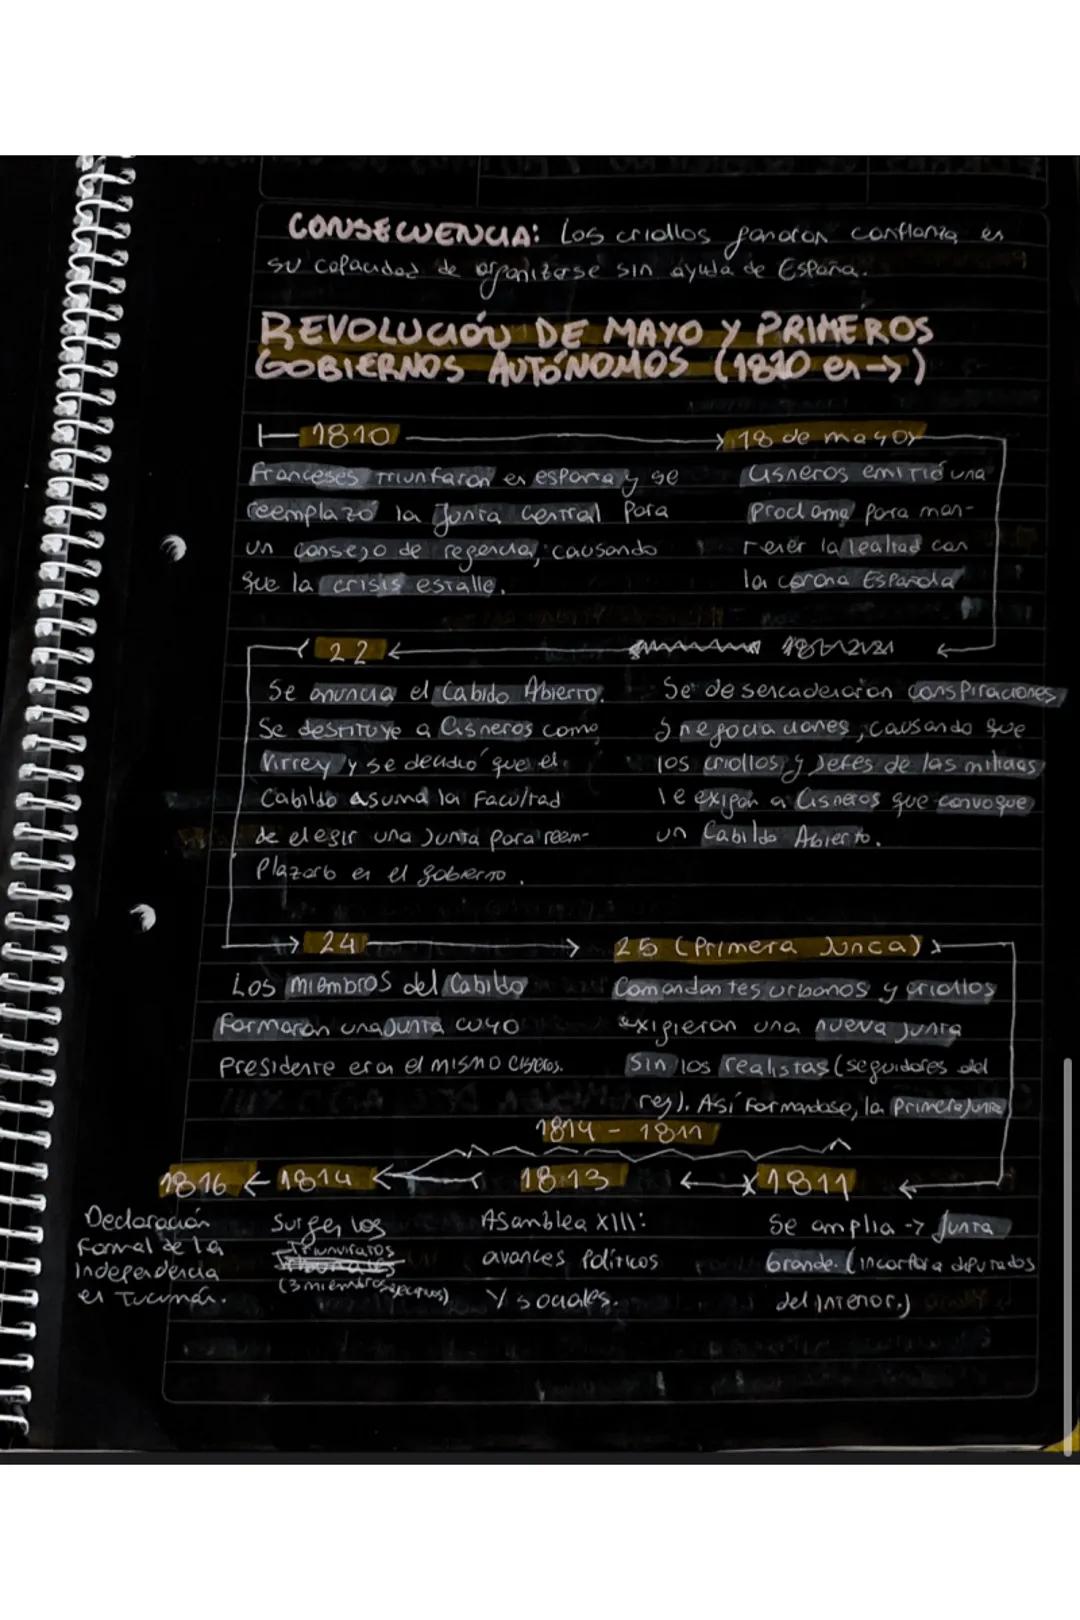 CONSECUENCIA: Los criollos ganaron confianza en
su capacidad de organizarse sin ayuda de España.
REVOLUCIÓN DE MAYO Y PRIMEROS
GOBIERNOS AUTÓNOMOS (1810 en →)
1810 → 18 de mayo
Franceses triunfaron en españa y se
reemplazó la Junta Central para
un consejo de regencia, causando
que la crisis estalle.
Cisneros emitió una
proclama para man-
tener la lealtad con
la corona Española
22 ←
Se anuncia el Cabido Abierto.
Se destituye a Cisneros como
Virrey y se decidió que el
Cabildo asuma la facultad
de elegir una Junta para reem-
plazarlo en el gobierno.
Se desencadenaron conspiraciones
y negociaciones, causando que
los criollos y Jefes de las milicias
le exigan a Cisneros que convoque
un Cabildo Abierto.
→ 24 → 25 (Primera Junca)
Los miembros del Cabildo
formaron una Junta cuyo
presidente era el mismo Cisneros.
Comandantes urbanos y criollos
exigieron una nueva junta
sin los realistas (seguidores del
rey). Así formandose, la Primera Junta
1814 - 1811
1816 ← 1814 ← 1813 ← 1811 ←
Declaración
formal de la
Independencia
en Tucumán.
Surgen los
Triunviratos
(3 miembros)
Asamblea XIII:
avances políticos
y sociales.
Se amplia → Junta
Grande. (incorpora diputados
del interior.)